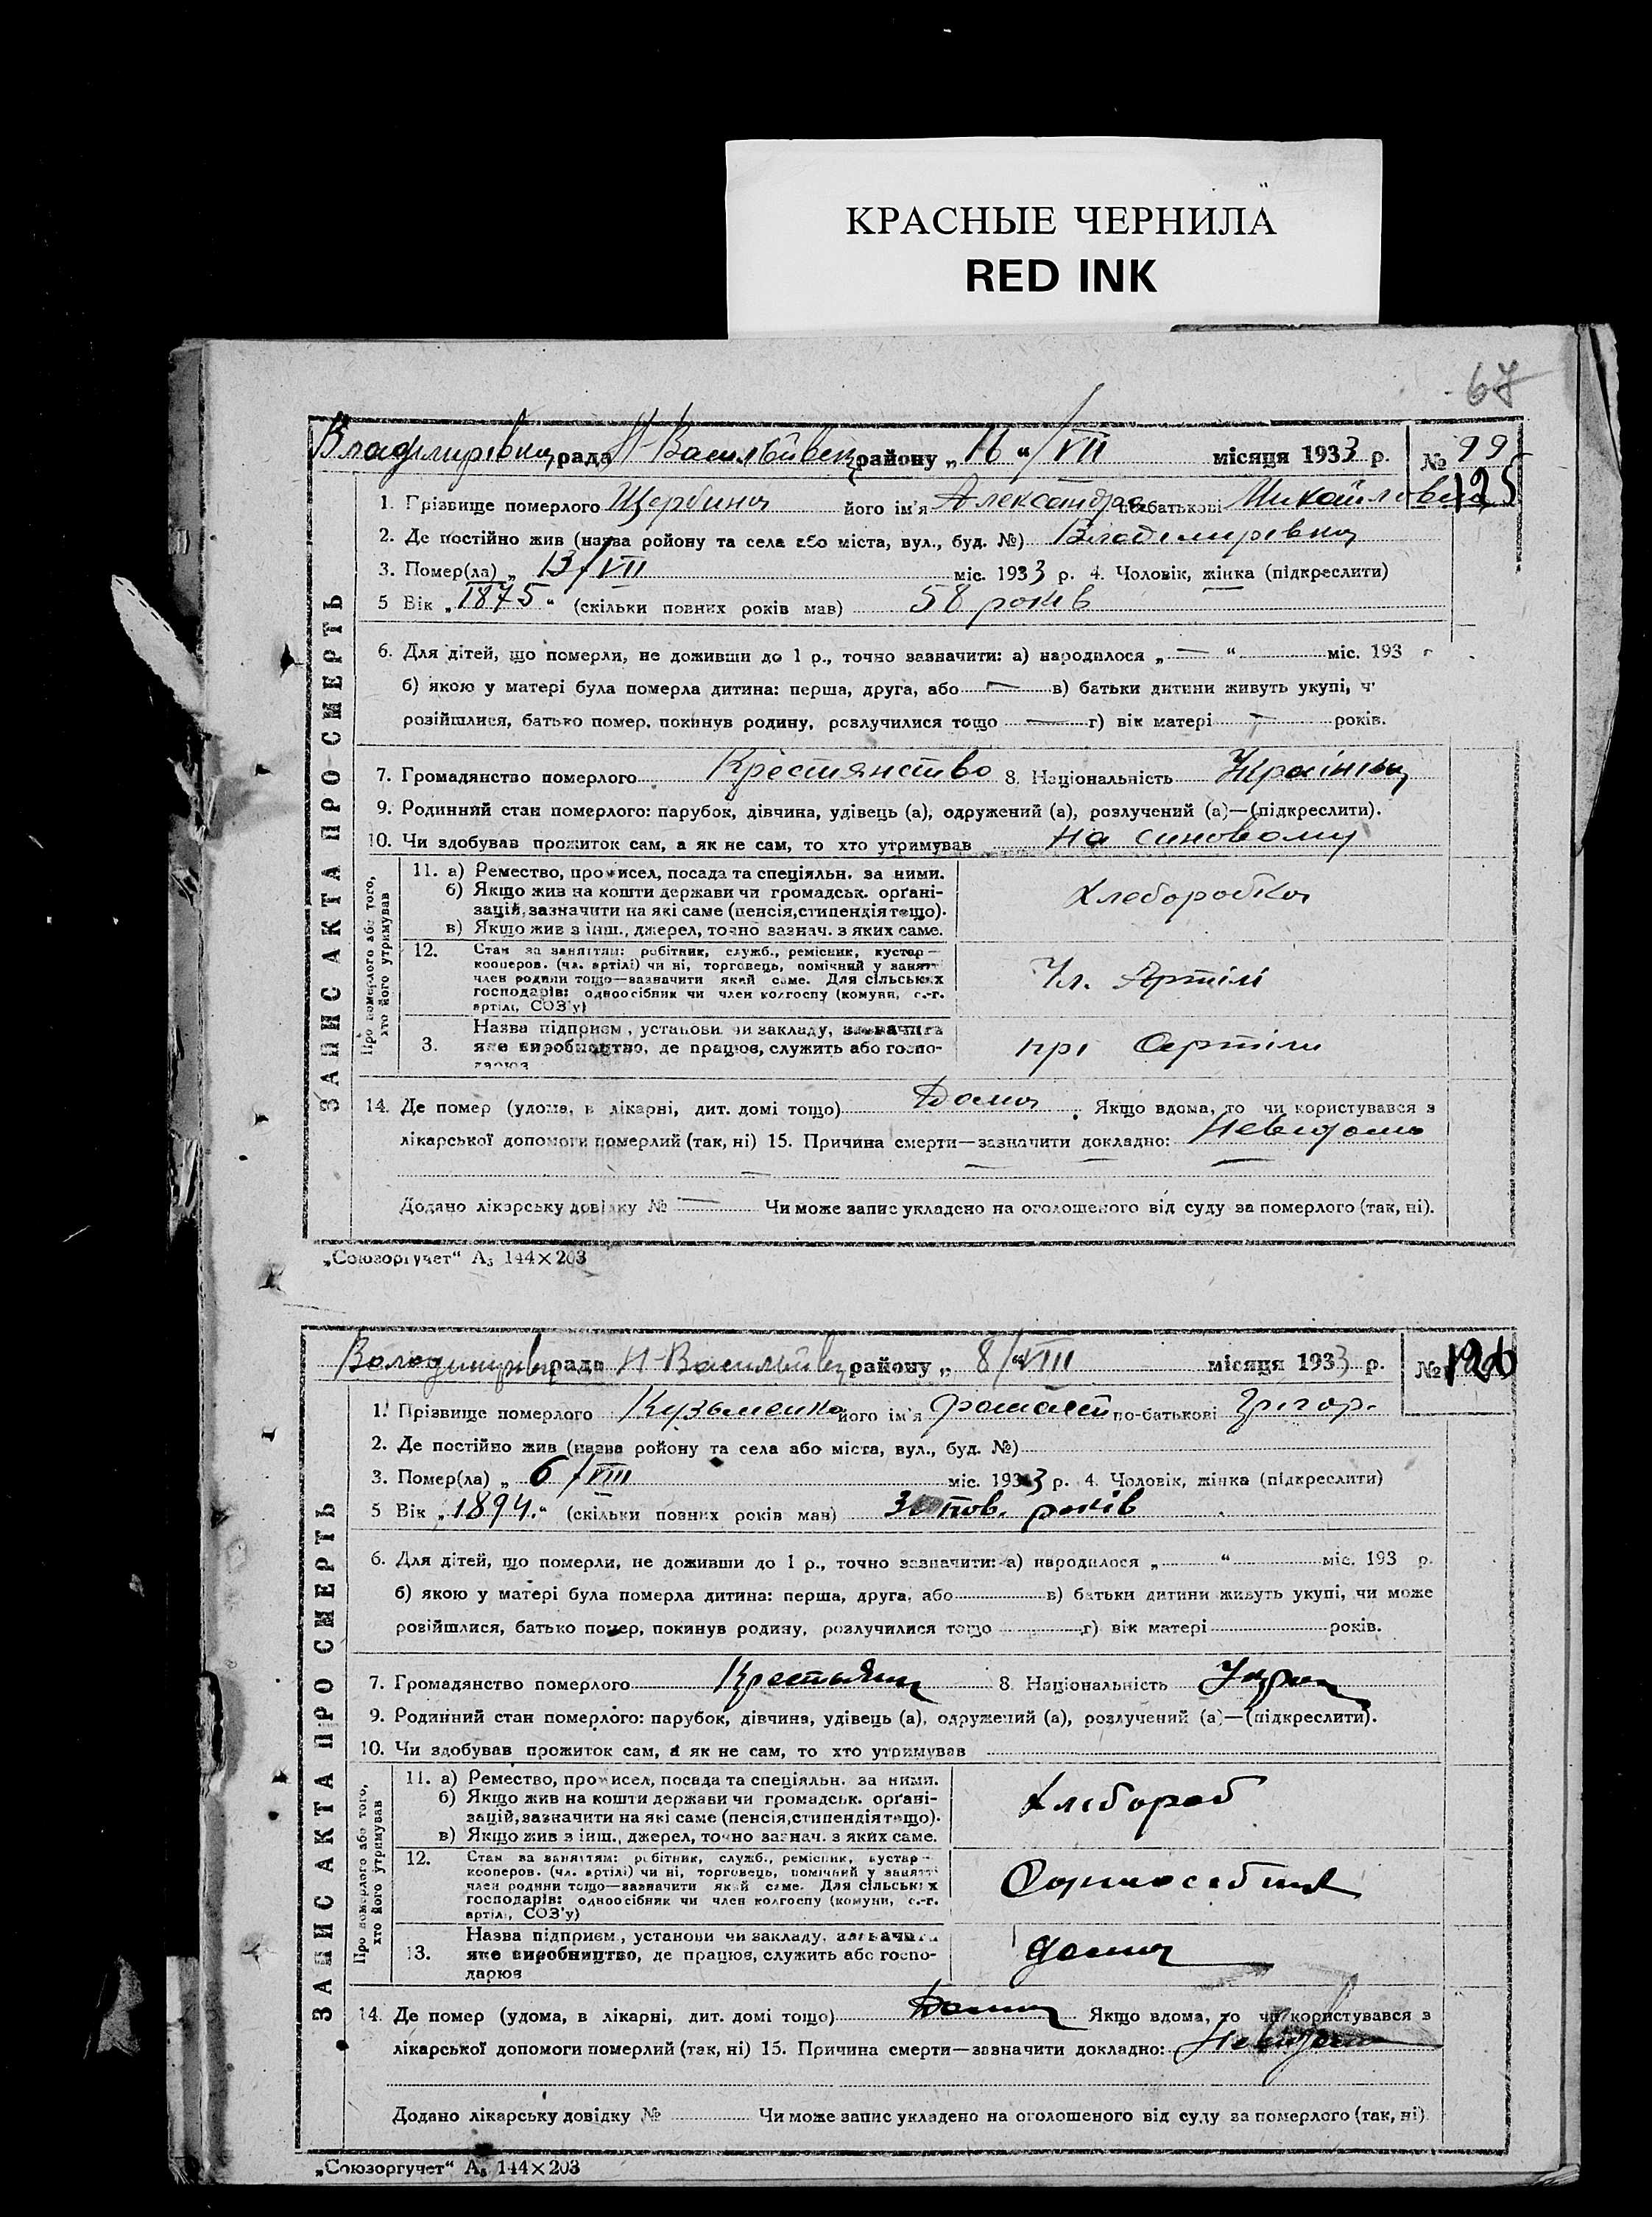 КРАСНЫЕ ЧЕРНИЛА
RED INK
67
Владимирівка рада Н-Василівськ району „16“/VII місяця 1933 р. № 99
125
1. Прізвище померлого Щербина його ім'я Александра по-батькові Михайловна
2. Де постійно жив (назва району та села або міста, вул., буд. №) Владимирівка
3. Помер(ла) „ 13/VII міс. 1933 р. 4. Чоловік, жінка (підкреслити)
5 Вік „1875“ (скільки повних років мав) 58 років
6. Для дітей, що померли, не доживши до 1 р., точно зазначити: а) народилося „—“ міс. 193
б) якою у матері була померла дитина: перша, друга, або — в) батьки дитини живуть укупі, ч
розійшлися, батько помер, покинув родину, розлучилися тощо — г) вік матері — років.
7. Громадянство померлого Крестянство 8. Національність
9. Родинний стан померлого: парубок, дівчина, удівець (а), одружений (а), розлучений (а)—(підкреслити).
10. Чи здобував прожиток сам, а як не сам, то хто утримував на синовому
ЗАПИС АКТА ПРО СМЕРТЬ
Про померлого або того, хто його утримував
11. а) Ремество, промисел, посада та спеціяльн. за ними.
б) Якщо жив на кошти держави чи громадськ. орґані-
зацій, зазначити на які саме (пенсія, стипендія тощо).
в) Якщо жив з інш., джерел, точно зазнач. з яких саме.
Хлеборобка
12. Стан за заняттям: робітник, служб., ремісник, кустар—
кооперов. (чл. артілі) чи ні, торговець, помічний у занятт
член родини тощо—зазначити який саме. Для сільських
господарів: одноосібник чи член колгоспу (комуни, с.-г.
артілі, СОЗ'у)
Чл. Артілі
3. Назва підприєм., установи чи закладу, зазначити
яке виробництво, де працюв, служить або госпо-
дарюв
прі Сартіли
14. Де помер (удома, в лікарні, дит. домі тощо) Дома. Якщо вдома, то чи користувався з
лікарської допомоги померлий (так, ні) 15. Причина смерти—зазначити докладно: Невидомо
Додано лікарську довідку № — Чи може запис укладено на оголошеного від суду за померлого (так, ні).
„Союзоргучет“ А₅ 144×203
рада Н-Василівськ району „ 8/“VIII місяця 1933 р. № 126
1. Прізвище померлого Кузьменко його ім'я по-батькові Григор.
2. Де постійно жив (назва району та села або міста, вул., буд. №)
3. Помер(ла) „ 6/VIII міс. 1933 р. 4. Чоловік, жінка (підкреслити)
5 Вік „1894.“ (скільки повних років мав) пов. років
6. Для дітей, що померли, не доживши до 1 р., точно зазначити: а) народилося „ “ міс. 193 р.
б) якою у матері була померла дитина: перша, друга, або в) батьки дитини живуть укупі, чи може
розійшлися, батько помер, покинув родину, розлучилися тощо г) вік матері років.
7. Громадянство померлого Крестьянин 8. Національність
9. Родинний стан померлого: парубок, дівчина, удівець (а), одружений (а), розлучений (а)—(підкреслити).
10. Чи здобував прожиток сам, а як не сам, то хто утримував
ЗАПИС АКТА ПРО СМЕРТЬ
Про померлого або того, хто його утримував
11. а) Ремество, промисел, посада та спеціяльн. за ними.
б) Якщо жив на кошти держави чи громадськ. орґані-
зацій, зазначити на які саме (пенсія, стипендія тощо).
в) Якщо жив з інш., джерел, точно зазнач. з яких саме.
Хлебороб
12. Стан за заняттям: робітник, служб., ремісник, кустар—
кооперов. (чл. артілі) чи ні, торговець, помічний у занятті
член родини тощо—зазначити який саме. Для сільських
господарів: одноосібник чи член колгоспу (комуни, с.-г.
артілі, СОЗ'у)
Одноосебник
13. Назва підприєм., установи чи закладу, зазначити
яке виробництво, де працюв, служить або госпо-
дарюв
дома
14. Де помер (удома, в лікарні, дит. домі тощо) Дома Якщо вдома, то чи користувався з
лікарської допомоги померлий (так, ні) 15. Причина смерти—зазначити докладно: Невидомо
Додано лікарську довідку № Чи може запис укладено на оголошеного від суду за померлого (так, ні)
„Союзоргучет“ А₅ 144×203